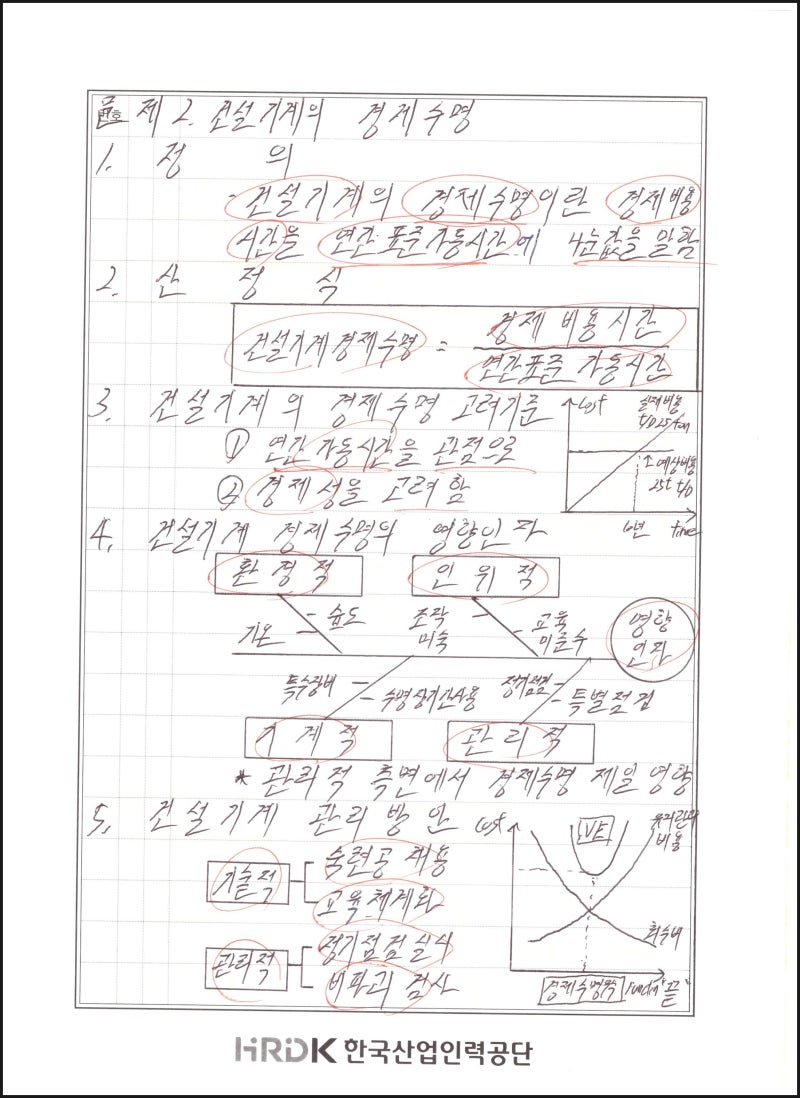 문제 2. 건설기계의 경제수명
1. 정의
- 건설기계의 경제수명이란 경제비용
시간을 연간표준가동시간에 나눈값을 말함
2. 산정식
건설기계경제수명 = 경제비용시간
연간표준 가동시간
3. 건설기계의 경제수명 고려기준
① 연간 가동시간을 관점으로
② 경제성을 고려함
cost
실제비용
↑ 예상비용
25t t/D
time
4. 건설기계 경제수명의 영향인자
환경적
인위적
- 습도
기온 -
조작 -
미숙
- 교육
미준수
영향
인자
특수장비 -
- 수명장기간사용
정기점검 -
- 특별점검
기계적
관리적
* 관리적 측면에서 경제수명 제일 영향
5. 건설기계 관리방안
기술적
숙련공 채용
교육체계화
관리적
정기점검 실시
비파괴 검사
cost
VE
유지관리
비용
"끝"
HRDK 한국산업인력공단